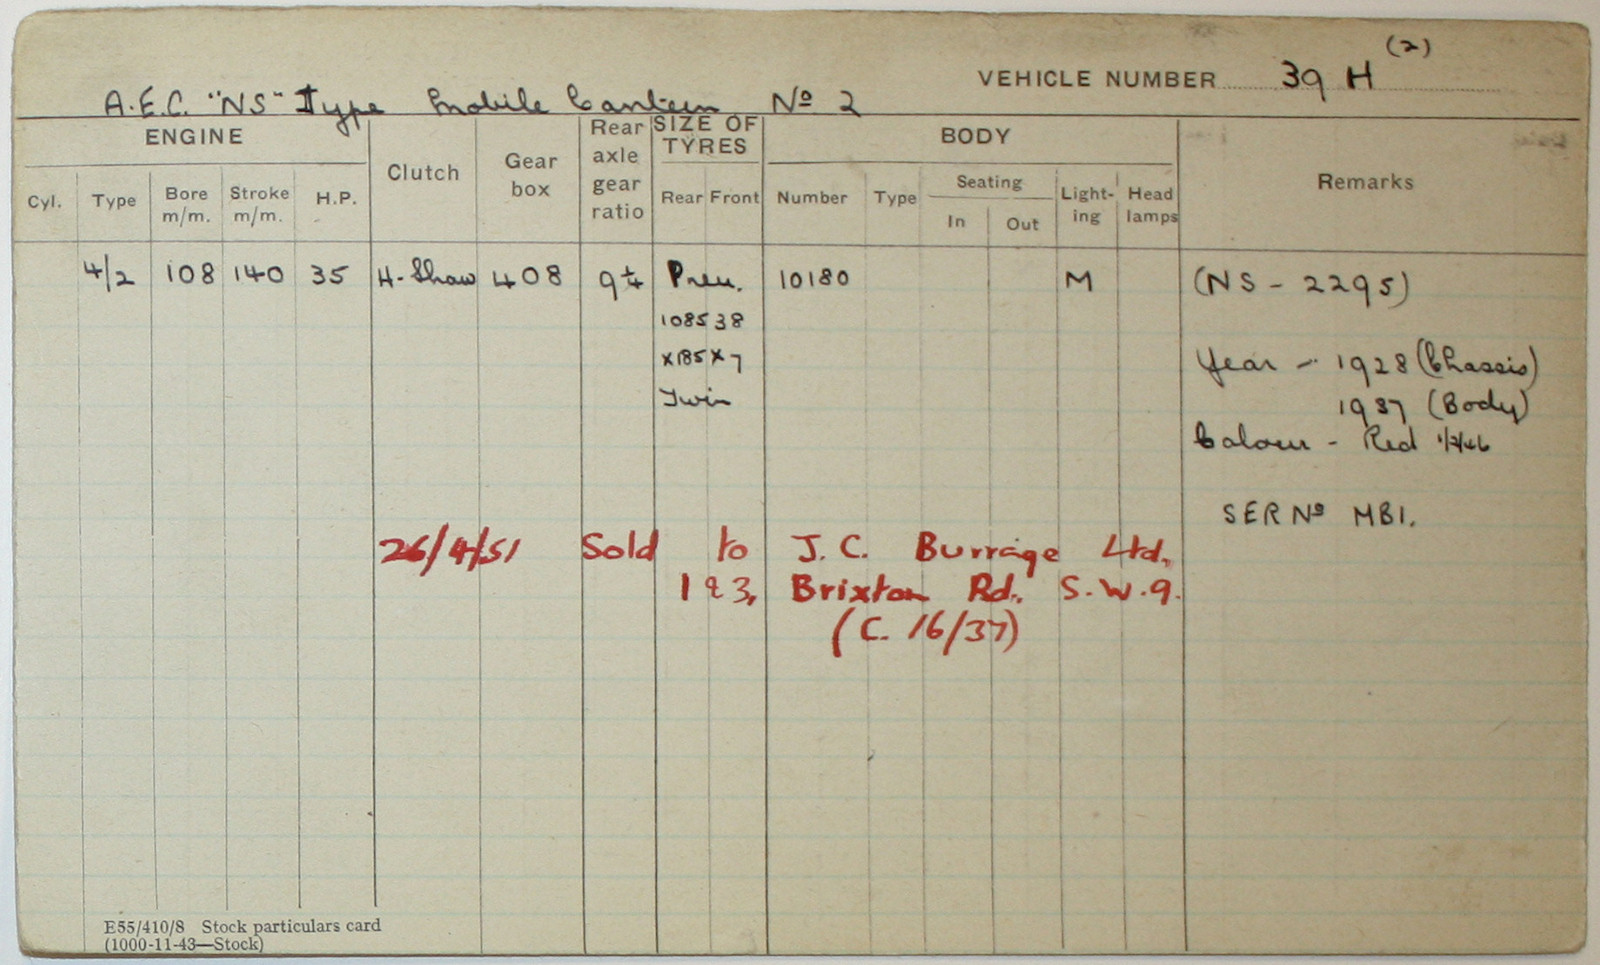 (2)
VEHICLE NUMBER 39 H
A.E.C. "NS" Type Mobile Canteen Nº 2
ENGINE Clutch Gear box Rear axle gear ratio SIZE OF TYRES BODY Remarks
Cyl. Type Bore m/m. Stroke m/m. H.P. Rear Front Number Type Seating In Out Light-ing Head lamps
4/2 108 140 35 H-Shaw 408 Pneu. 10180 M (NS - 2295)
1085 38
x185 x7 Year - 1928 (Chassis)
Twin 1937 (Body)
Colour - Red
SER Nº MB1.
26/4/51 Sold to J.C. Burrage Ltd,
1 & 3, Brixton Rd. S.W.9.
(C. 16/37)
E55/410/8 Stock particulars card
(1000-11-43—Stock)